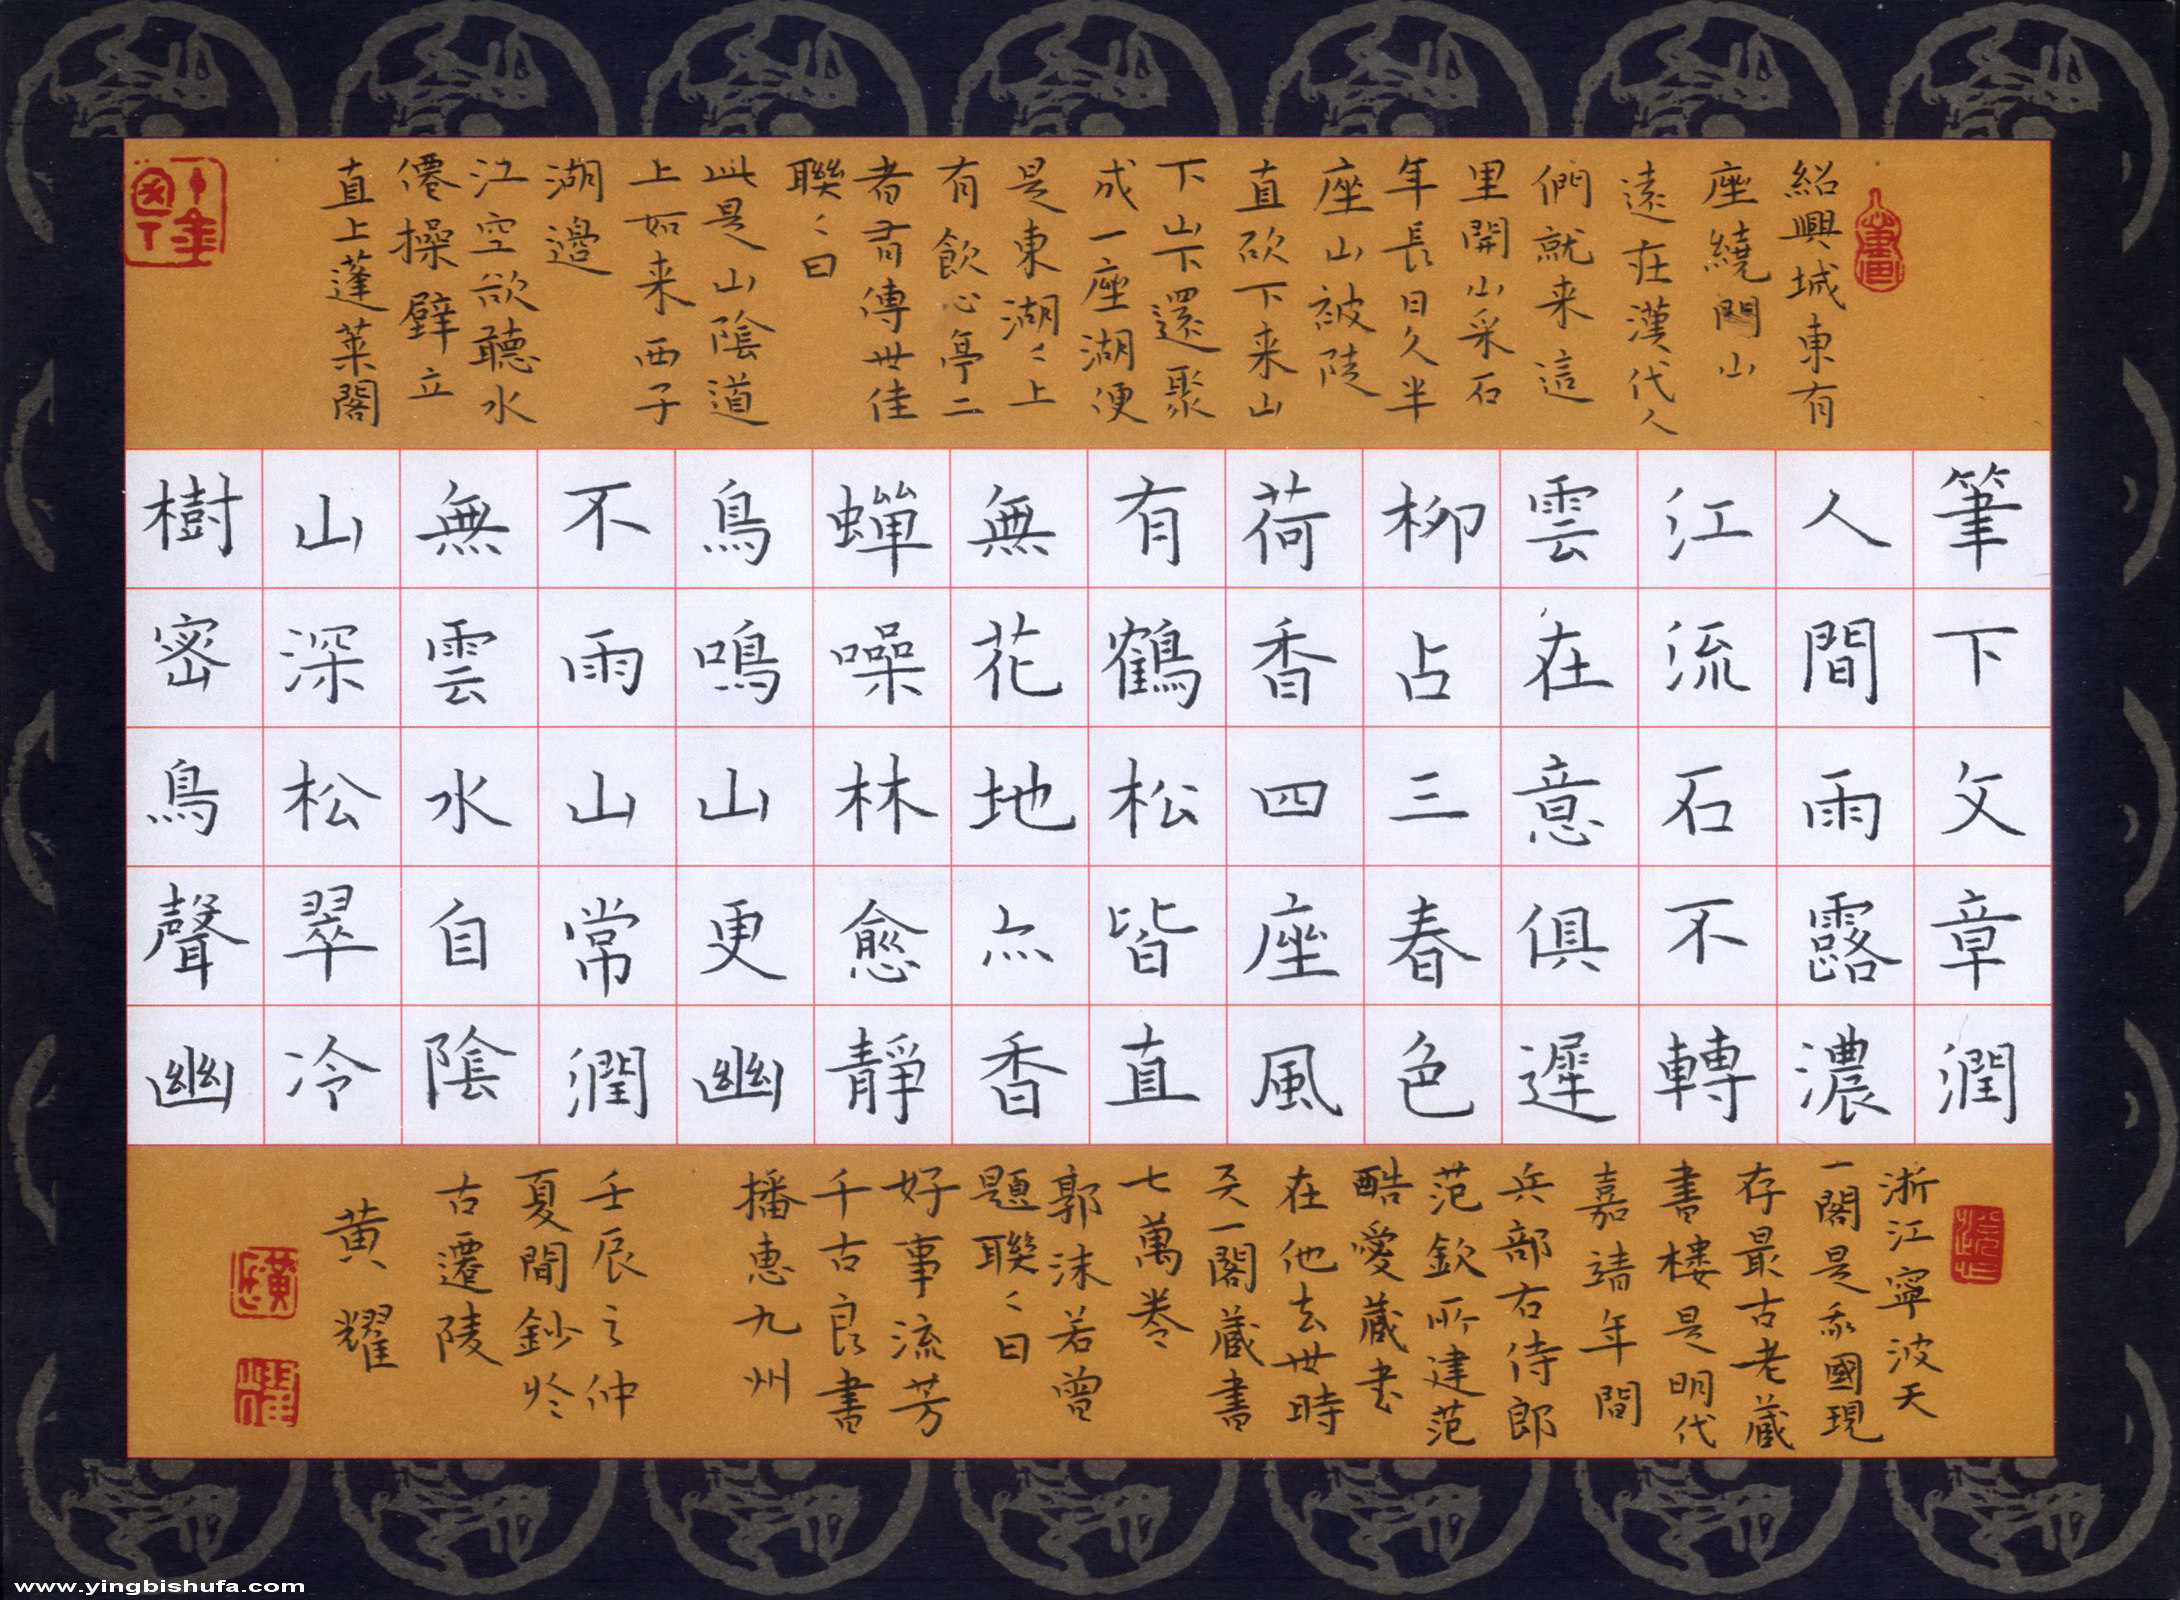 紹興城東有
座繞門山
遠在漢代人
們就来這
里開山采石
年長日久半
座山被陡
直砍下来山
下山下還聚
成一座湖便
是東湖〻上
有飲心亭二
者傳世佳
聯〻曰
此是山陰道
上如来西子
湖邊
江空欲聽水
僊操壁立
直上蓬萊閣
筆下文章潤
人間雨露濃
江流石不轉
雲在意俱遲
柳占三春色
荷香四座風
有鶴松皆直
無花地亦香
蟬噪林愈靜
鳥鳴山更幽
不雨山常潤
無雲水自陰
山深松翠冷
樹密鳥聲幽
浙江寧波天
一閣是我國現
存最古老藏
書樓是明代
嘉靖年間
兵部右侍郎
范欽所建范
酷愛藏書
在他去世時
天一閣藏書
七萬卷
郭沫若曾
題聯〻曰
好事流芳
千古良書
播惠九州
壬辰之仲
夏間鈔於
古遷陵
黄耀
www.yingbishufa.com